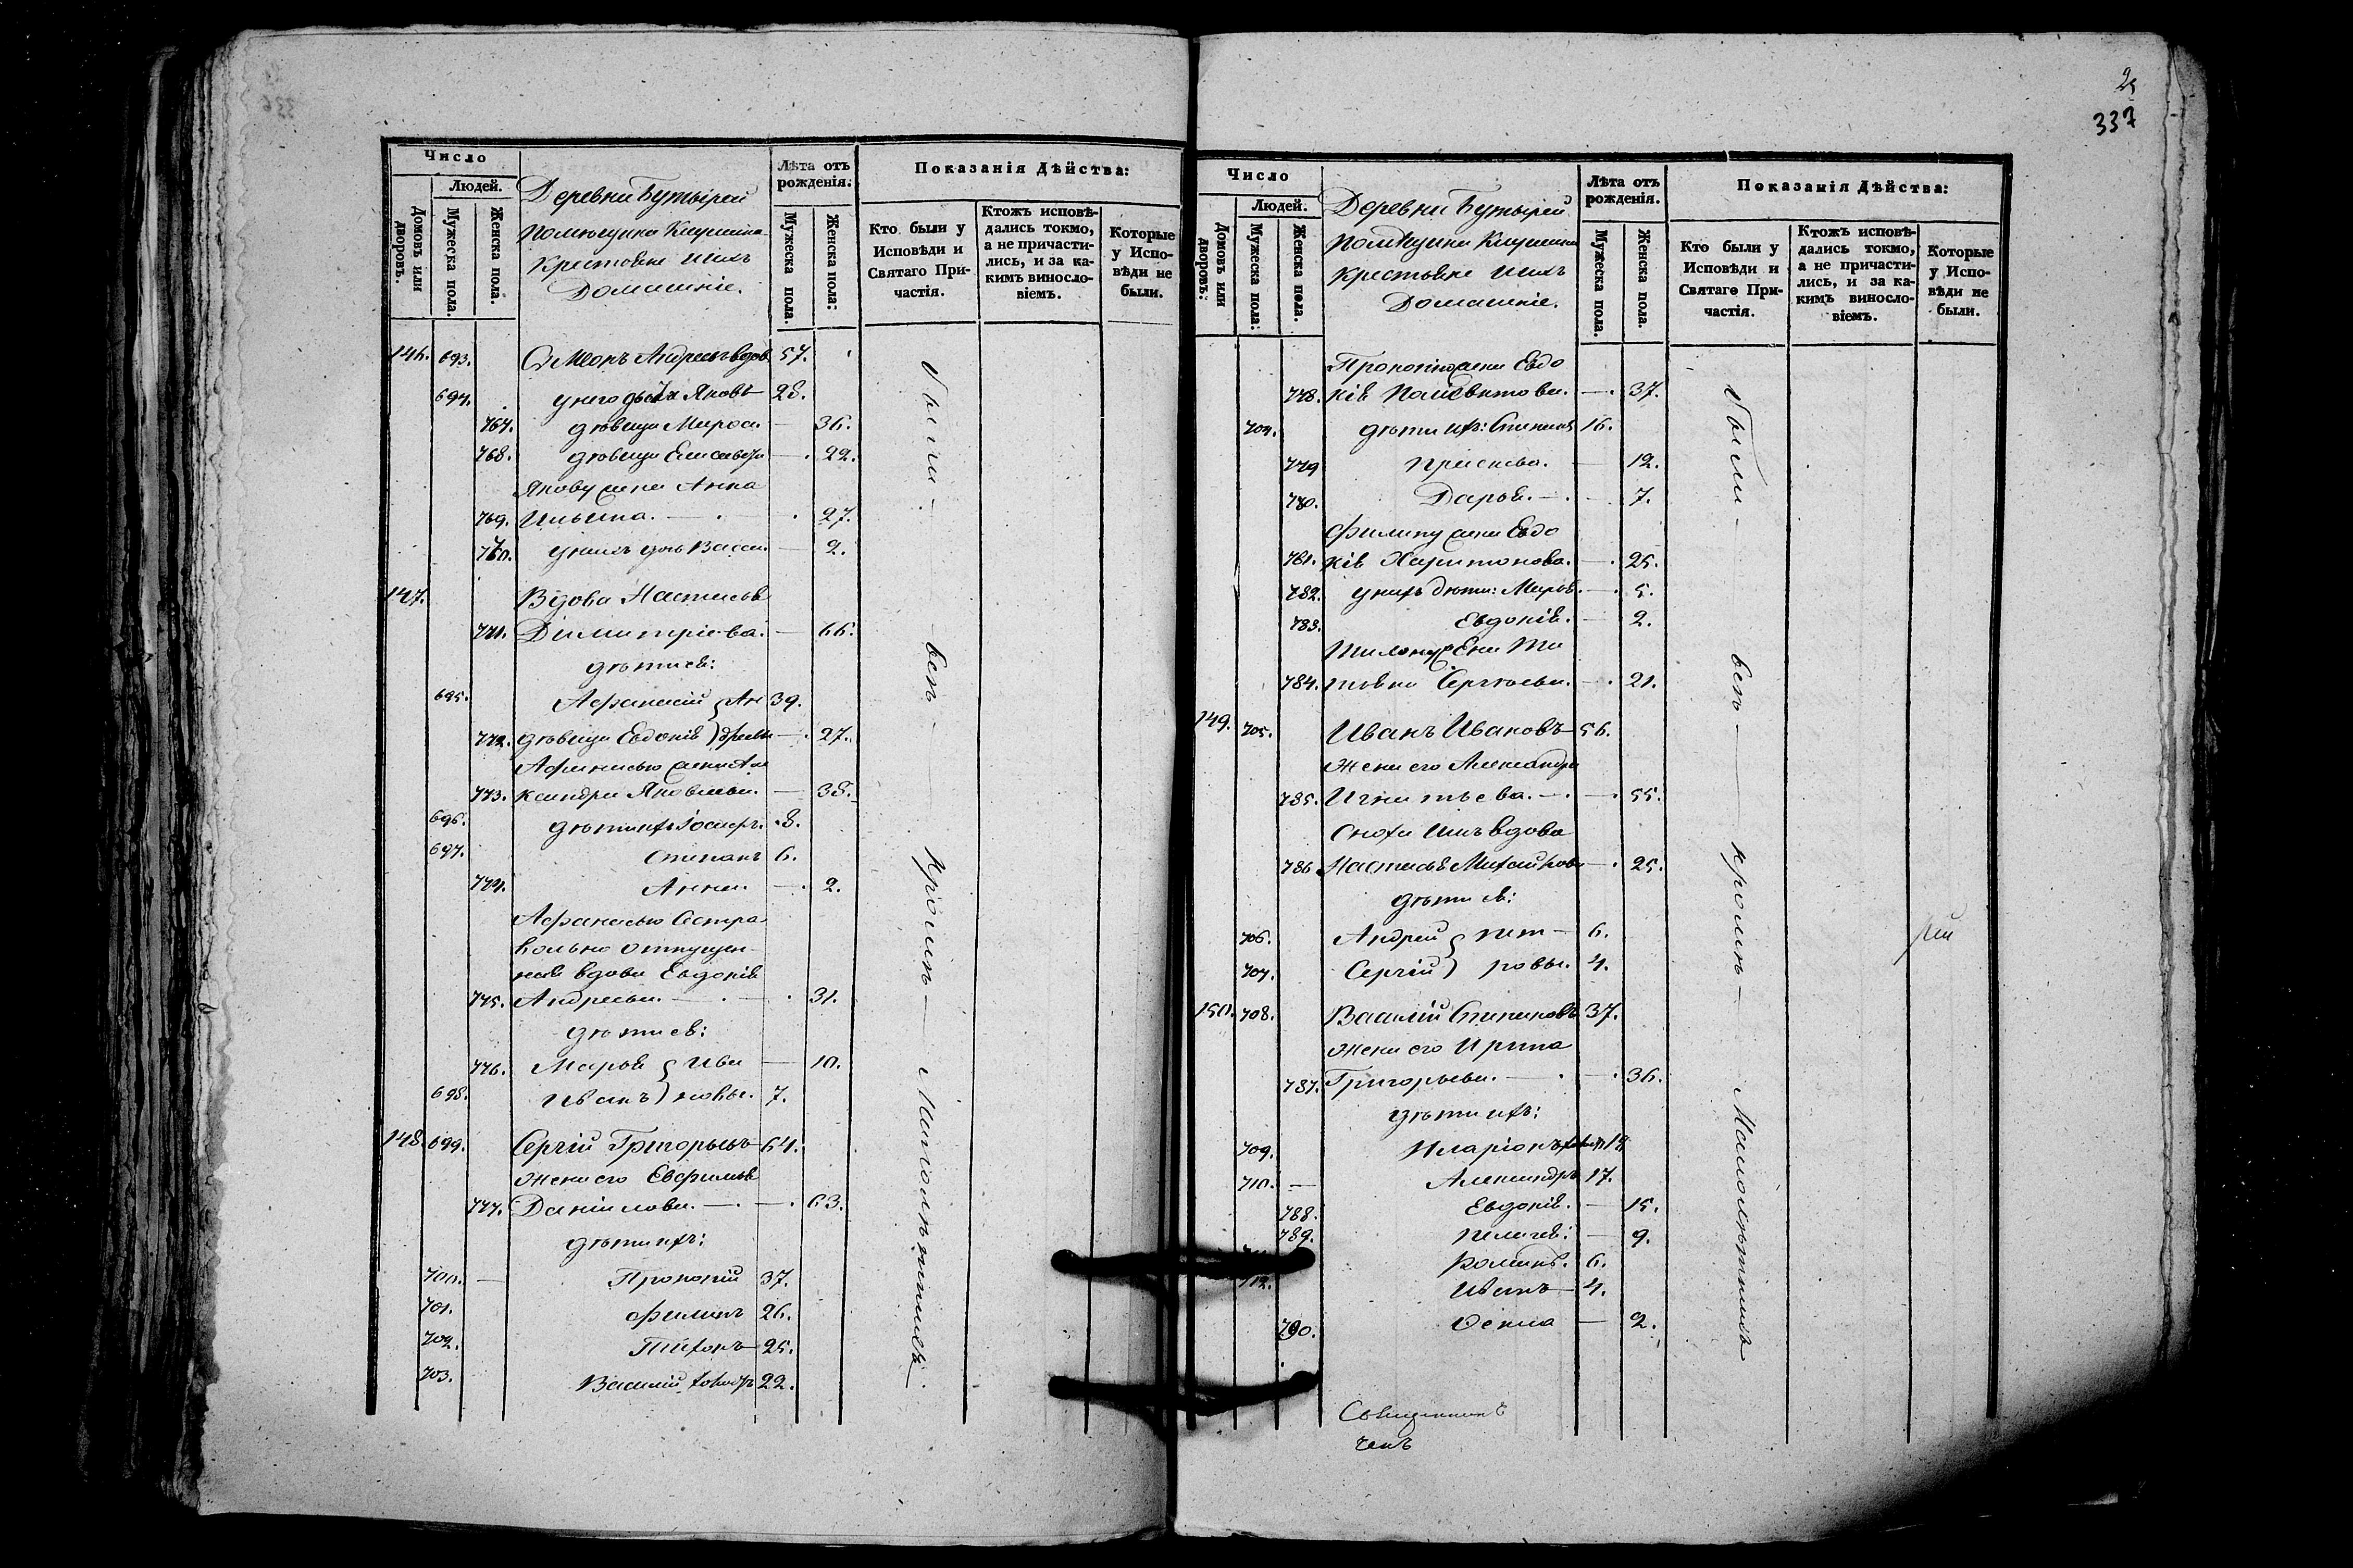 Число
Людей.
Домовъ или дворовъ.
Мужеска пола.
Женска пола.
Деревни Бутырей
помѣщика
крестьяне ихъ
Домашніе.
Лѣта отъ рожденія:
Мужеска пола.
Женска пола:
Показанія Дѣйства:
Кто были у Исповѣди и Святаго Причастія.
Ктожъ исповѣдались токмо, а не причастились, и за какимъ винословіемъ.
Которые у Исповѣди не были.
146. 693. Симеонъ Андреевъ вдов 57.
694. у него дѣти Яковъ 28.
767. дѣвица 36.
768. дѣвица Елисавета 22.
Якову жена Анна
769. Ильина. 27.
770. у нихъ дочь Васса. 2.
147. Вдова Настасья
771. Димитріева. 66.
дѣти ея:
695. Афанасій Ан 39.
772. дѣвица Евдокія дреевы 27.
Афанасью жена Але
773. ксандра Яковлева. 38.
696. дѣти ихъ Іосифъ. 8.
697. Стефанъ 6.
774. Анна. 2.
Афанасью Сестра
вольно отпущен-
ная вдова Евдокія
775. Андреева. 31.
дѣти ея:
776. Марья Ива 10.
698. Иванъ новы. 7.
148. 699. Сергій Григорьевъ 64.
Жена его Евфимья
777. Даніилова. 63.
дѣти ихъ:
700. Прокопій 37.
701. Филипъ 26.
702. Тихонъ 25.
703. Василій 22.
были — всѣ — кромѣ — Малолѣтнихъ.
25
337
Число
Людей.
Домовъ или дворовъ:
Мужеска пола:
Женска пола.
Деревни Бутырей
помѣщика
крестьяне ихъ
Домашніе.
Лѣта отъ рожденія.
Мужеска пола.
Женска пола.
Показанія Дѣйства:
Кто были у Исповѣди и Святаго Причастія.
Ктожъ исповѣдались токмо, а не причастились, и за какимъ винословіемъ.
Которые у Исповѣди не были.
Прокопію жена Евдо
778. кія 37.
704. дѣти ихъ: 16.
779 Прасковья. 12.
780. Дарья. 7.
Филипу жена Евдо
781. кія Харитонова. 25.
782. у нихъ дѣти: Марья. 5.
783. Евдокія. 2.
Тихону жена Та
784. тьяна Сергѣева. 21.
149. 705. Иванъ Ивановъ 56.
Жена его Александра
785. Игнатьева. 55.
Сноха ихъ вдова
786. Настасья Михайлова 25.
дѣти ея:
706. Андрей Пет 6.
707. Сергій ровы. 4.
150. 708. Василій Стефановъ 37.
Жена его Ирина
787. Григорьева. 36.
дѣти ихъ:
709. Иларіонъ 19
710. Александръ 17.
788. Евдокія. 15.
789. Пелагея: 9.
Романъ. 6.
712. Иванъ 4.
790. Ѳекла 2.
были — всѣ — кромѣ — Малолѣтнихъ
Священникъ